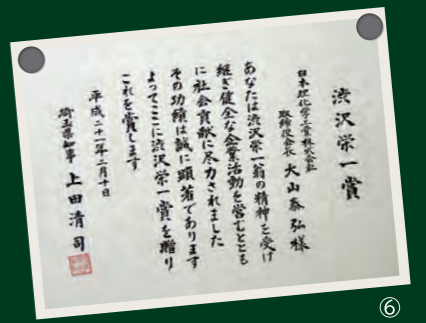 渋沢栄一賞
日本理化学工業株式会社
取締役会長 大山泰弘様
あなたは渋沢栄一翁の精神を受け
継ぎ健全な企業活動を営むととも
に社会貢献に尽力されました
その功績は誠に顕著であります
よってここに渋沢栄一賞を贈り
これを賞します
平成二十一年二月十日
埼玉県知事 上田清司
⑥